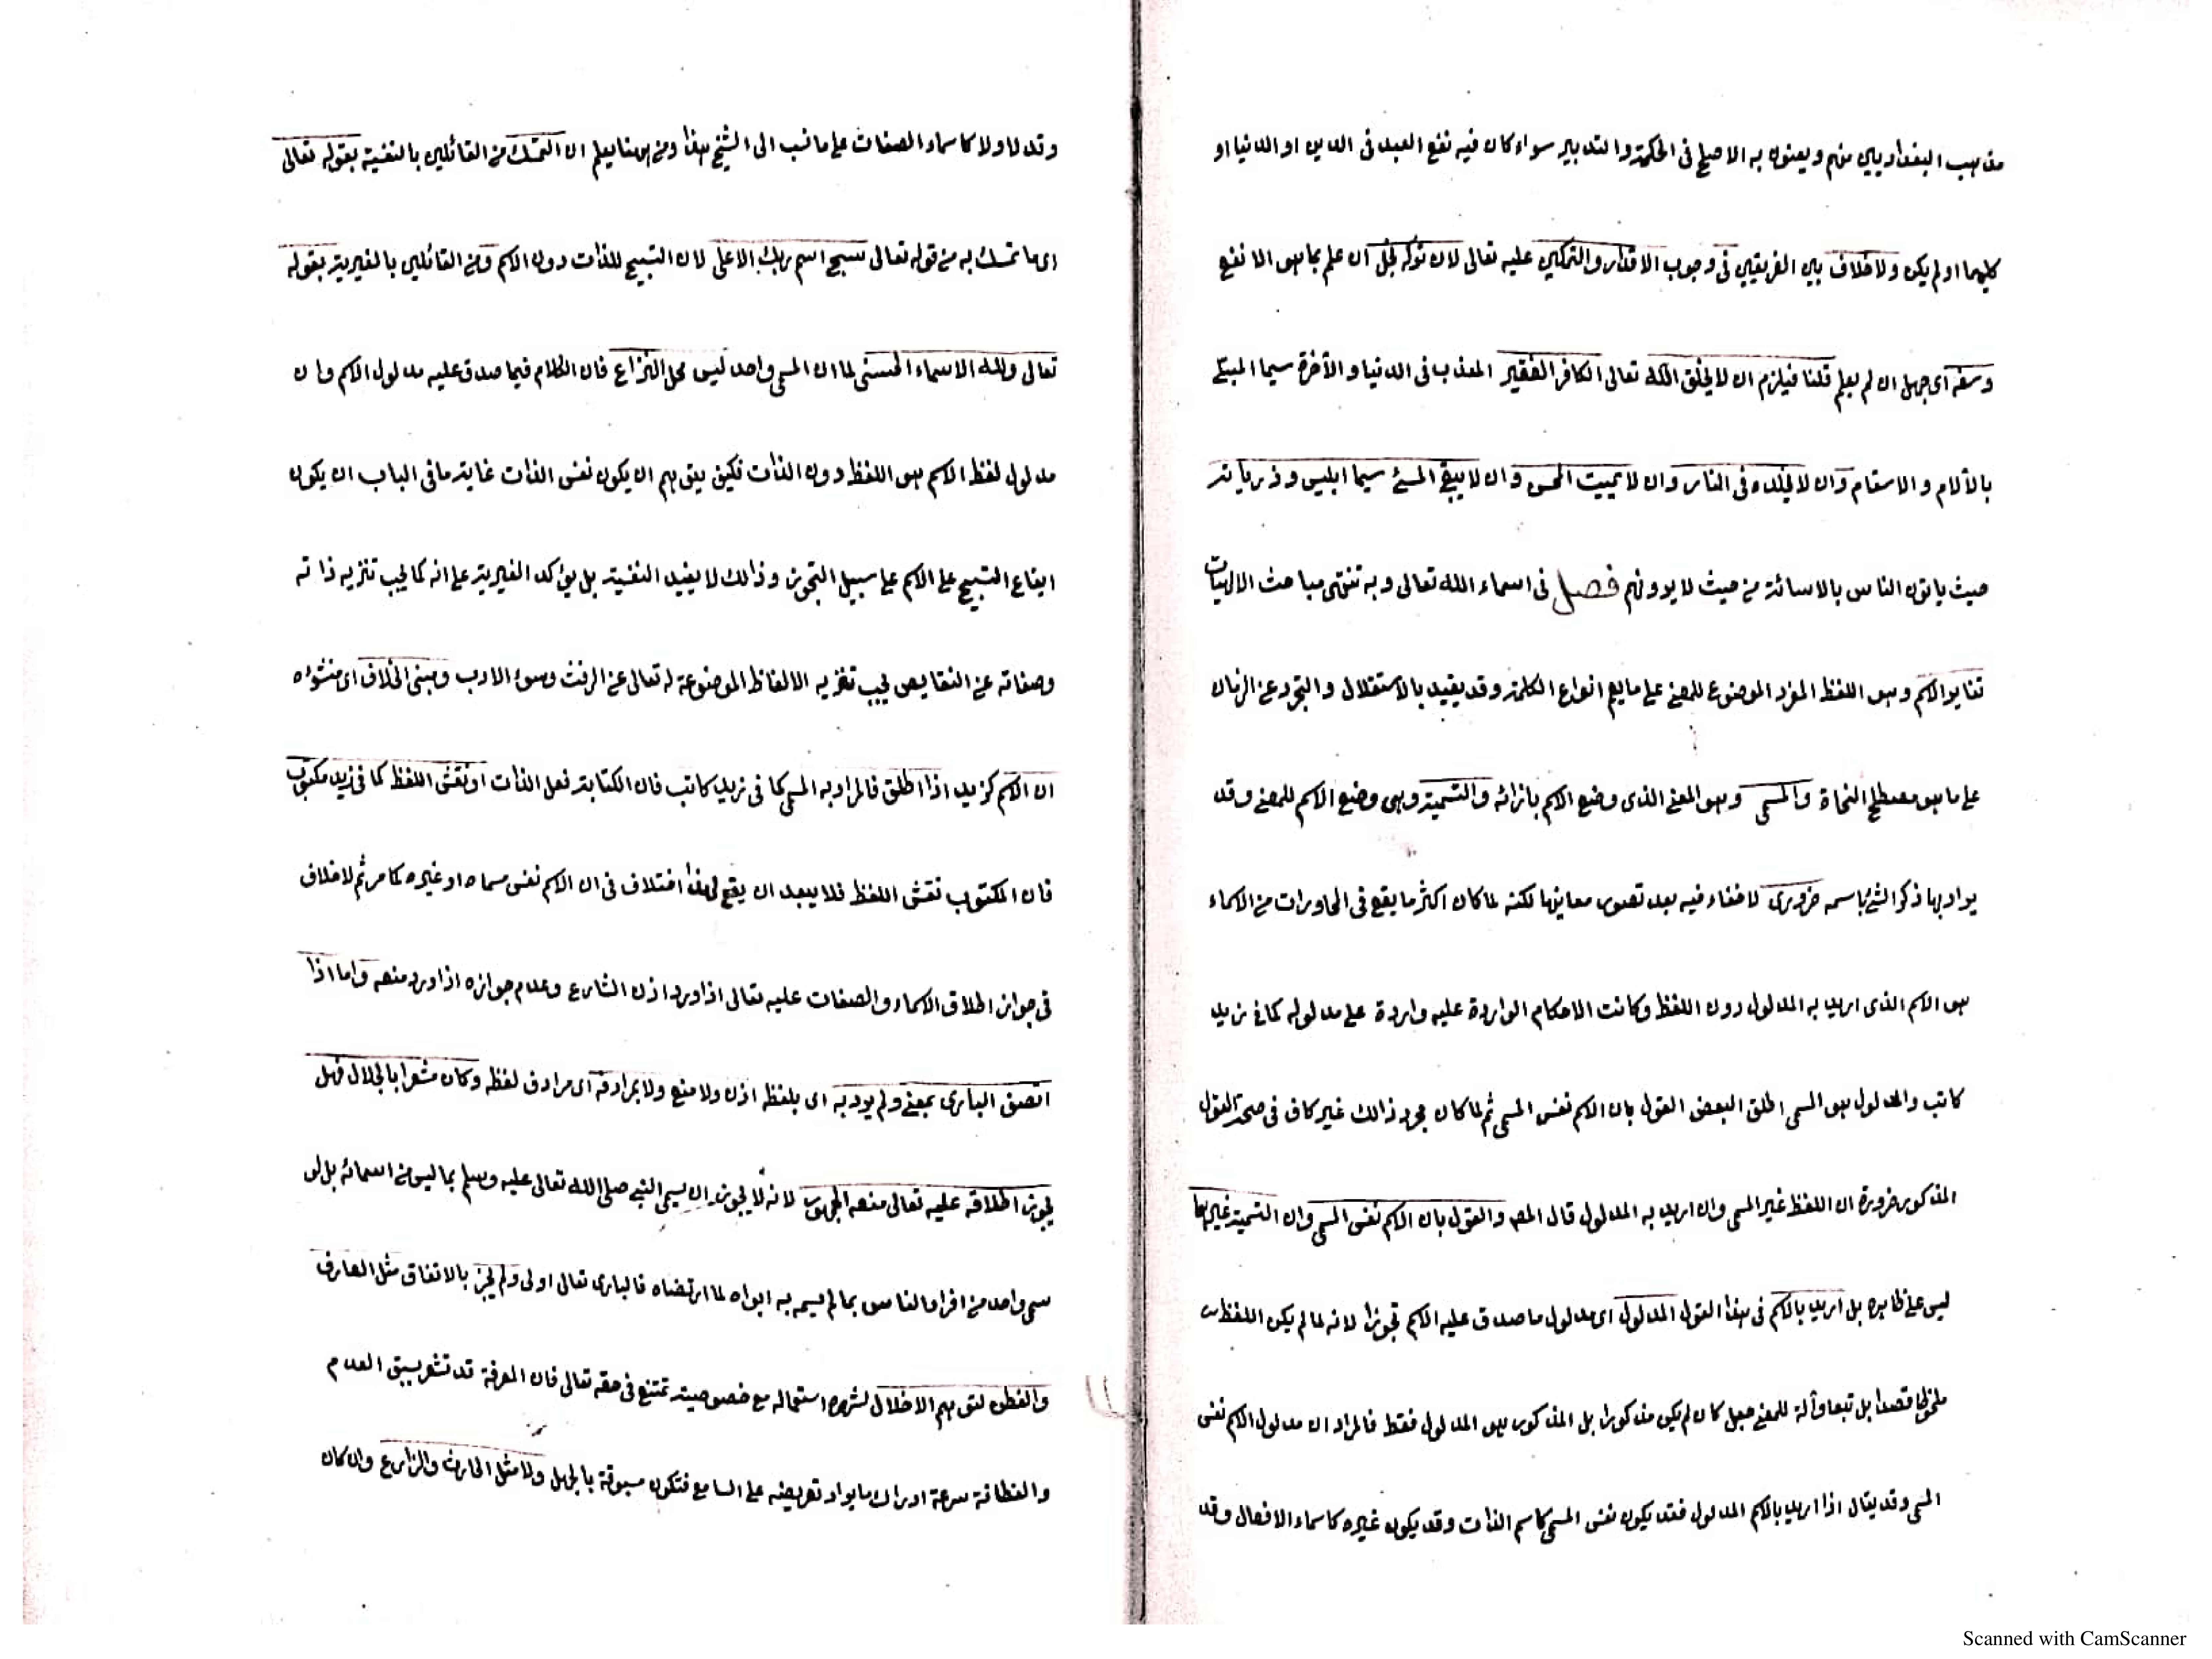 مذهب البغداديين منهم ويعنون به الاصلح فى الحكمة والتدبير سواء كان فيه نفع العبد فى الدين او الدنيا او
كليهما او لم يكن ولا خلاف بين الفريقين فى وجوب الاقدار والتمكين عليه تعالى لان تركه بخل ان علم بما هو الانفع
وسفه اى جهل ان لم يعلم قلنا فيلزم ان لا يخلق الله تعالى الكافر الفقير المعذب فى الدنيا والآخرة سيما المبتلى
بالآلام والاسقام وان لا يخلده فى النار وان لا يميت المحسن وان لا يبقى المسئ سيما ابليس وذرياته
حيث ياتون الناس بالاساءة من حيث لا يرونهم فصل فى اسماء الله تعالى وبه تنتهى مباحث الالهيات
تغاير الاسم وهو اللفظ المفرد الموضوع للمعنى على ما يعم انواع الكلمة وقد يقيد بالاستقلال والتجرد عن الزمان
على ما هو مصطلح النحاة والمسمى وهو المعنى الذى وضع الاسم بازائه والتسمية وهى وضع الاسم للمعنى وقد
يراد بها ذكر الشئ باسمه ضرورى لا خفاء فيه بعد تصور معانيها لكنه لما كان اكثر ما يقع فى المحاورات من الاسماء
هو الاسم الذى اريد به المدلول دون اللفظ وكانت الاحكام الواردة عليه واردة على مدلوله كما فى زيد
كاتب والمدلول هو المسمى اطلق البعض القول بان الاسم نفس المسمى ثم لما كان مجرد ذالك غير كاف فى صحة القول
المذكور ضرورة ان اللفظ غير المسمى وان اريد به المدلول قال المص والقول بان الاسم نفس المسمى وان التسمية غيرهما
ليس على ظاهره بل اريد بالاسم فى هذا القول المدلول اى مدلول ما صدق عليه الاسم تجوزا لانه لما لم يكن اللفظ
ملحوظا قصدا بل تبعا وآلة للمعنى جعل كان لم يكن مذكورا بل المذكور هو المدلول فقط فالمراد ان مدلول الاسم نفس
المسمى وقد يقال اذا اريد بالاسم المدلول فقد يكون نفس المسمى كاسم الذات وقد يكون غيره كاسماء الافعال وقد
وقد لا ولا كاسماء الصفات على ما نسب الى الشيخ هذا ومن ههنا يعلم ان التمسك من القائلين بالنفسية بقوله تعالى
اى ما تمسك به من قوله تعالى سبح اسم ربك الاعلى لان التسبيح للذات دون الاسم ومن القائلين بالغيرية بقوله
تعالى ولله الاسماء الحسنى لما ان المسمى واحد ليس محل النزاع فان الكلام فيما صدق عليه مدلول الاسم وان
مدلول لفظ الاسم هو اللفظ دون الذات فكيف يتوهم ان يكون نفس الذات غاية ما فى الباب ان يكون
ايقاع التسبيح على الاسم على سبيل التجوز وذالك لا يفيد النفسية بل يؤكد الغيرية على انه كما يجب تنزيه ذاته
وصفاته عن النقايص يجب تنزيه الالفاظ الموضوعة له تعالى عن الرفث وسوء الادب ومبنى الخلاف اى منشؤه
ان الاسم كزيد اذا اطلق فالمراد به المسمى كما فى زيد كاتب فان الكتابة فعل الذات او نقش اللفظ كما فى زيد مكتوب
فان المكتوب نقش اللفظ فلا يبعد ان يقع لهذا اختلاف فى ان الاسم نفس مسماه او غيره كما مر ثم لا خلاف
فى جواز اطلاق الاسماء والصفات عليه تعالى اذا ورد اذن الشارع وعدم جوازه اذا ورد منعه واما اذا
اتصف البارى بمعنى ولم يرد به اى بلفظه اذن ولا منع ولا بمرادفه اى مرادف لفظه وكان مشعرا بالجلال فهل
يجوز اطلاقه عليه تعالى منعه الجمهور لانه لا يجوز ان يسمى النبى صلى الله تعالى عليه وسلم بما ليس من اسمائه بل لو
سمى واحد من افراد الناس بما لم يسمه به ابواه لما ارتضاه فالبارى تعالى اولى ولم يجز بالاتفاق مثل العارف
والفطن لتوهم الاخلال لشهرة استعماله مع خصوصية تمتنع فى حقه تعالى فان المعرفة قد تشعر بسبق العدم
والفطانة سرعة ادراك ما يراد تعريضه على السامع فتكون مسبوقة بالجهل ولا مثل الحارث والزارع وان كان
Scanned with CamScanner